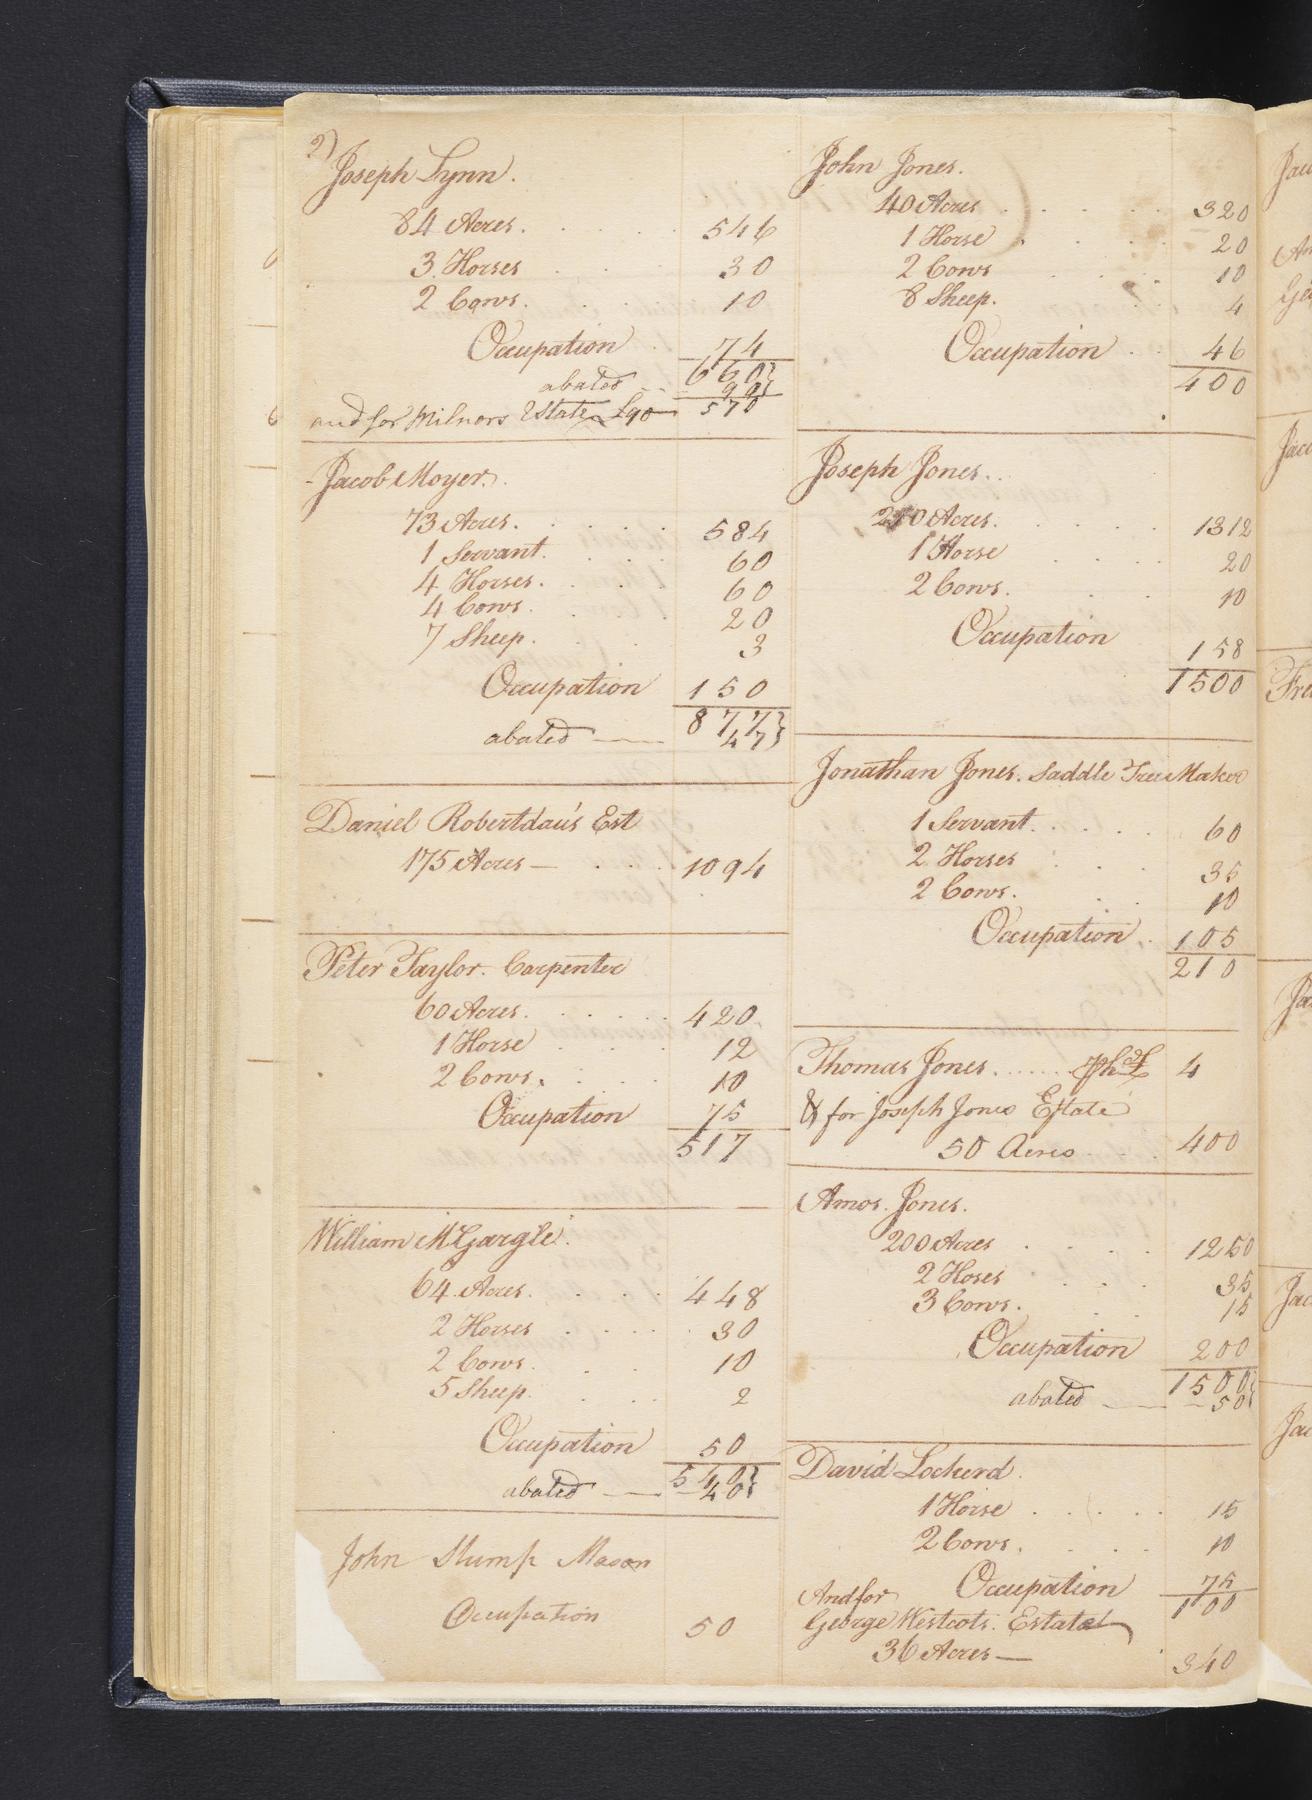 2)
Joseph Lynn.
84 Acres. 546
3 Horses 30
2 Cows. 10
Occupation 74
660
abated 90
and for Milnors Estate £90 570
Jacob Moyer.
73 Acres. 584
1 Servant. 60
4 Horses. 60
4 Cows. 20
7 Sheep. 3
Occupation 150
877
abated 47
Daniel Robertdau's Est
175 Acres 1094
Peter Taylor. Carpenter
60 Acres. 420
1 Horse 12
2 Cows. 10
Occupation 75
517
William McGargle.
64 Acres. 448
2 Horses 30
2 Cows. 10
5 Sheep. 2
Occupation 50
540
abated 40
John Stump Mason
Occupation 50
John Jones.
40 Acres 320
1 Horse 20
2 Cows 10
8 Sheep. 4
Occupation 46
400
Joseph Jones.
210 Acres. 1312
1 Horse 20
2 Cows. 10
Occupation 158
1500
Jonathan Jones. Saddle Tree Maker
1 Servant. 60
2 Horses 35
2 Cows. 10
Occupation 105
210
Thomas Jones 4
& for Joseph Jones Estate
50 Acres 400
Amos Jones.
200 Acres 1250
2 Hoses 35
3 Cows. 15
Occupation 200
1500
abated 50
David Lockerd.
1 Horse 15
2 Cows. 10
Occupation 75
And for 100
George Westcots. Estate
36 Acres 340